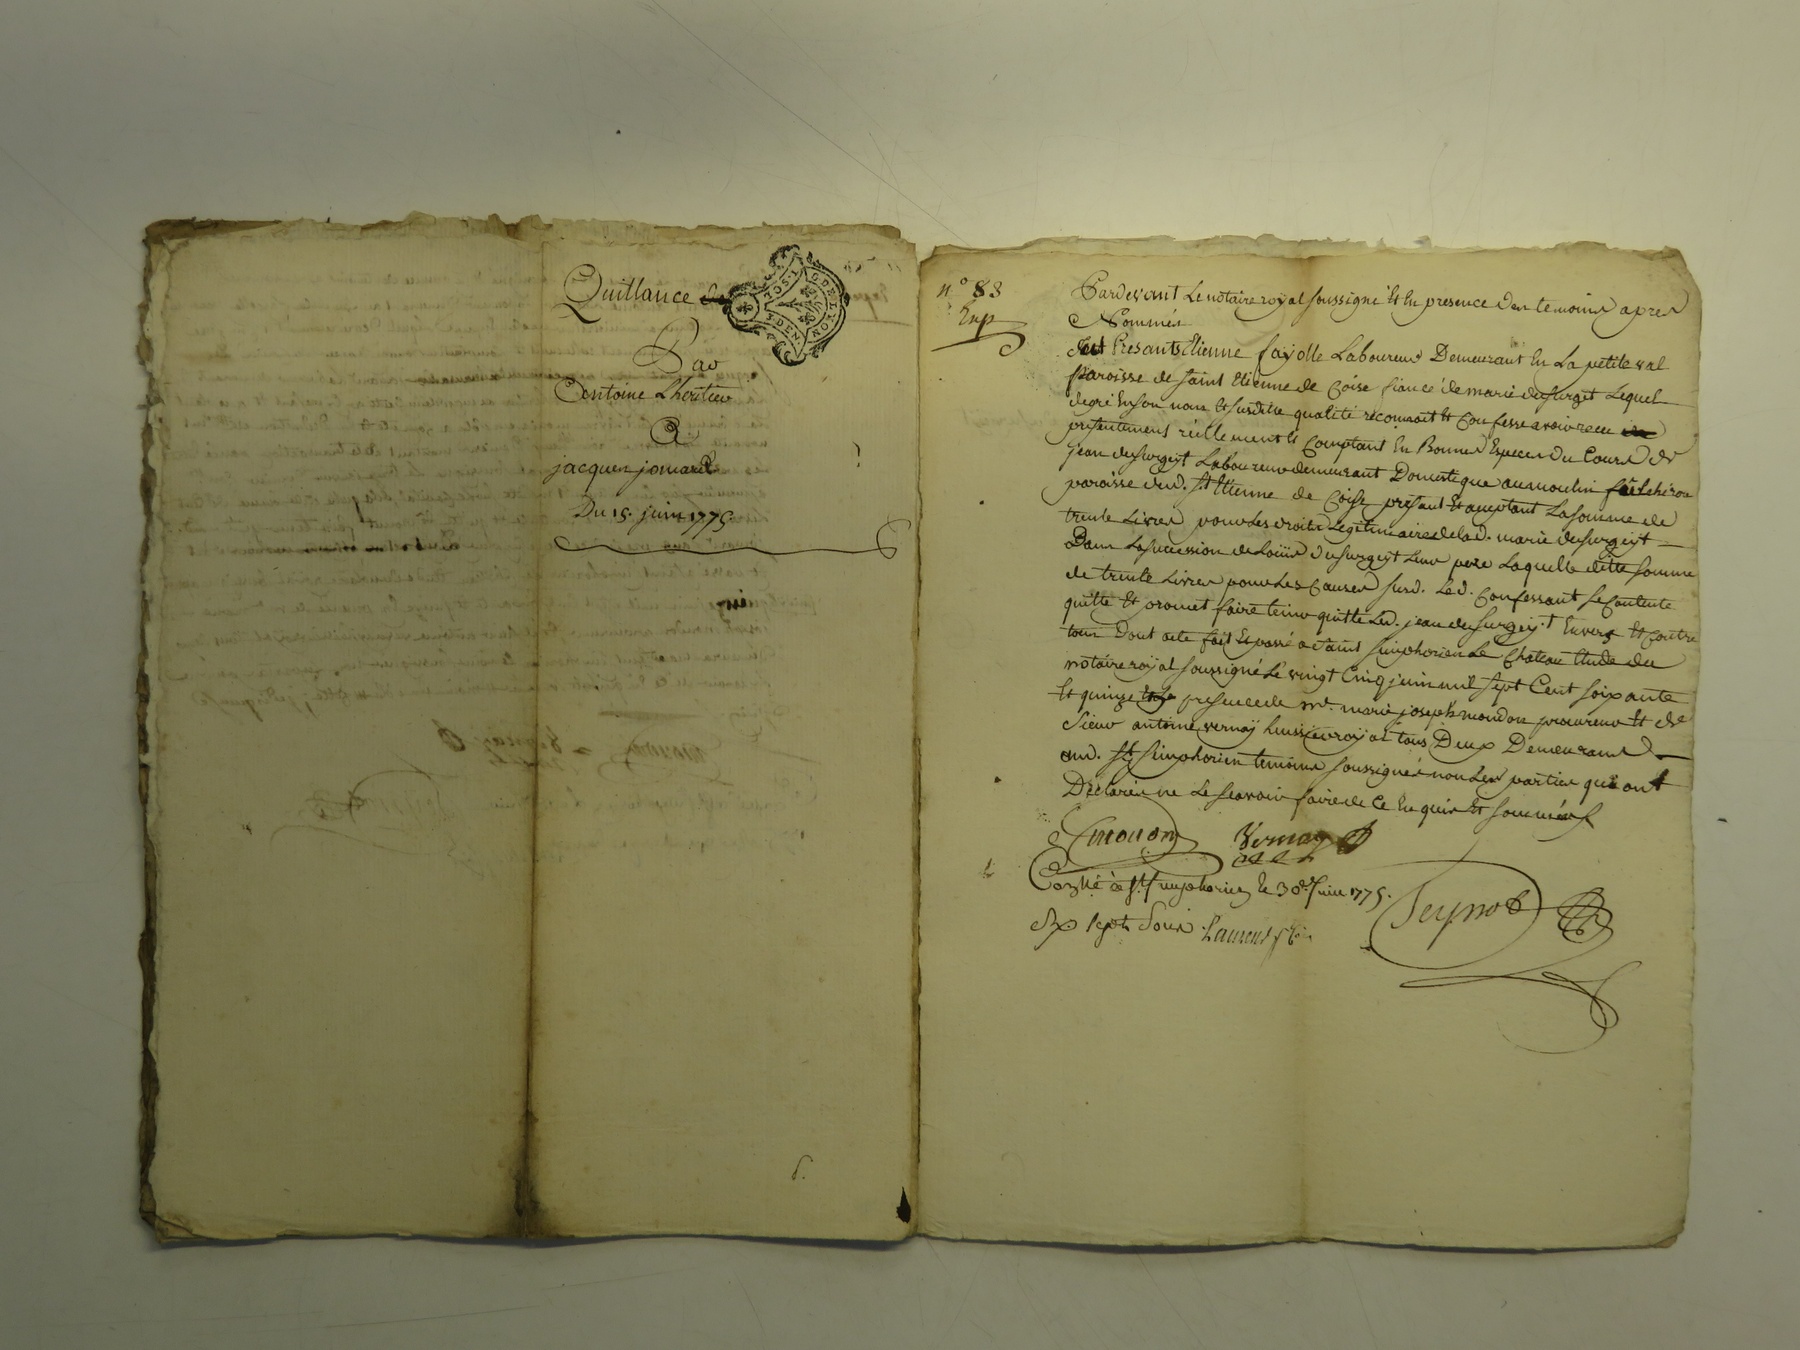 Quittance
Par
Antoine Lheritier
A
jacques jomard
Du 15. juin 1775.
6.
n° 83
Exp
Pardevant Le notaire royal soussigné Et En presence des temoins apres
Nommés
fut Presant Etienne fayolle Laboureur Demeurant En La petite val
Paroisse de saint Etienne de Coise fiancé de marie dusurget Lequel
degré En son nom Et susditte qualité reconnoit Et Confesse avoir receu
presentement réellement Et Comptant En Bonnes Especes du Cours de
jean dusurgeyt Laboureur demeurant Domestique au moulin
paroisse dud. St Etienne de Coise present Et acceptant La somme de
trente Livres pour Les droits Legitimaires de lad. marie dusurgeyt
Dans La succession de Loüis dusurgeyt Leur pere Laquelle ditte somme
de trente Livres pour Les Causes susd. Led. Confessant se Contente
quitte Et promet faire tenir quitte Led. jean dusurgeyt Envers Et Contre
tous Dont acte fait Et passé a st simphorien Le Chateau Etude du
notaire royal soussigné Le vingt Cinq juin mil sept Cent soixante
Et quinze presence de mr. marie joseph mondon procureur Et de
Sieur antoine vernay huissier royal tous Deux Demeurans
aud. St simphorien temoins soussignés non Les parties qui ont
Declarés ne Le scavoir faire de Ce Enquis Et sommés
Vernay
Conllé à St. Simphorien le 30e. Juin 1775.
Rx sept Sous Laurenson
Peynot